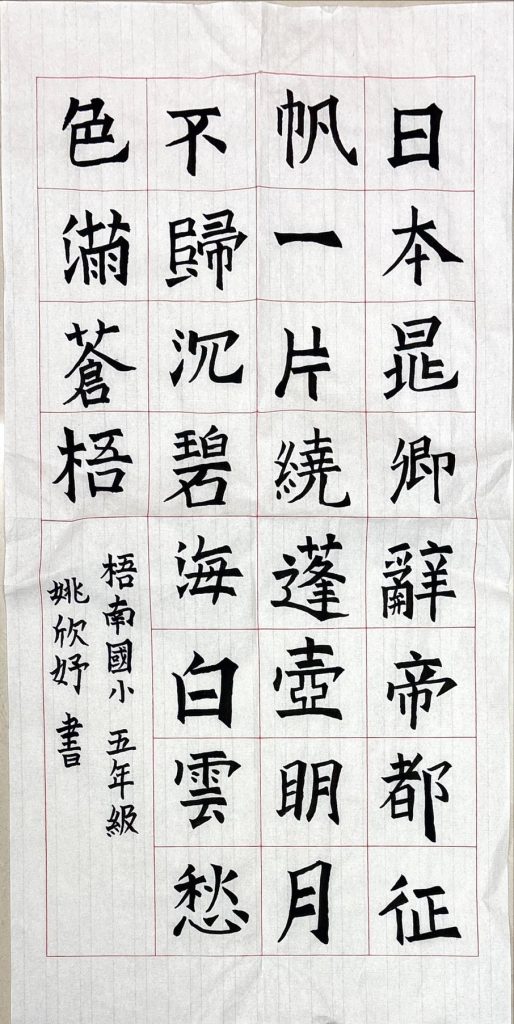 日本晁卿辭帝都征
帆一片繞蓬壺明月
不歸沉碧海白雲愁
色滿蒼梧
梧南國小 五年級
姚欣妤 書